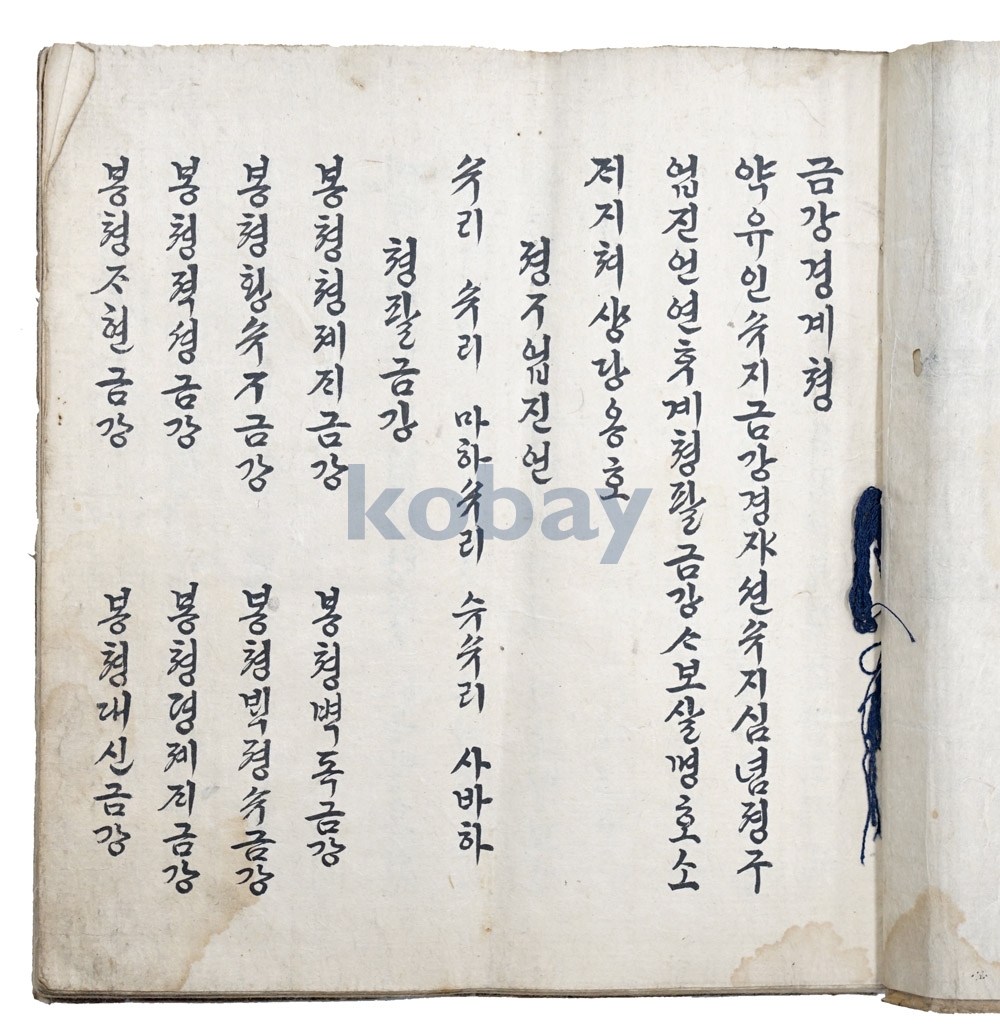 금강경계쳥
약유인슈지금강경쟈션슈지심념졍구
업진언연후계쳥팔금강스보살명호소
져지쳐샹당옹호
졍구업진언
슈리 슈리 마하슈리 수슈리 사바하
쳥팔금강
봉쳥쳥졔지금강 봉쳥벽독금강
봉쳥황슈구금강 봉쳥빅졍슈금강
봉쳥젹셩금강 봉쳥뎡졔지금강
봉쳥즈현금강 봉쳥대신금강
kobay